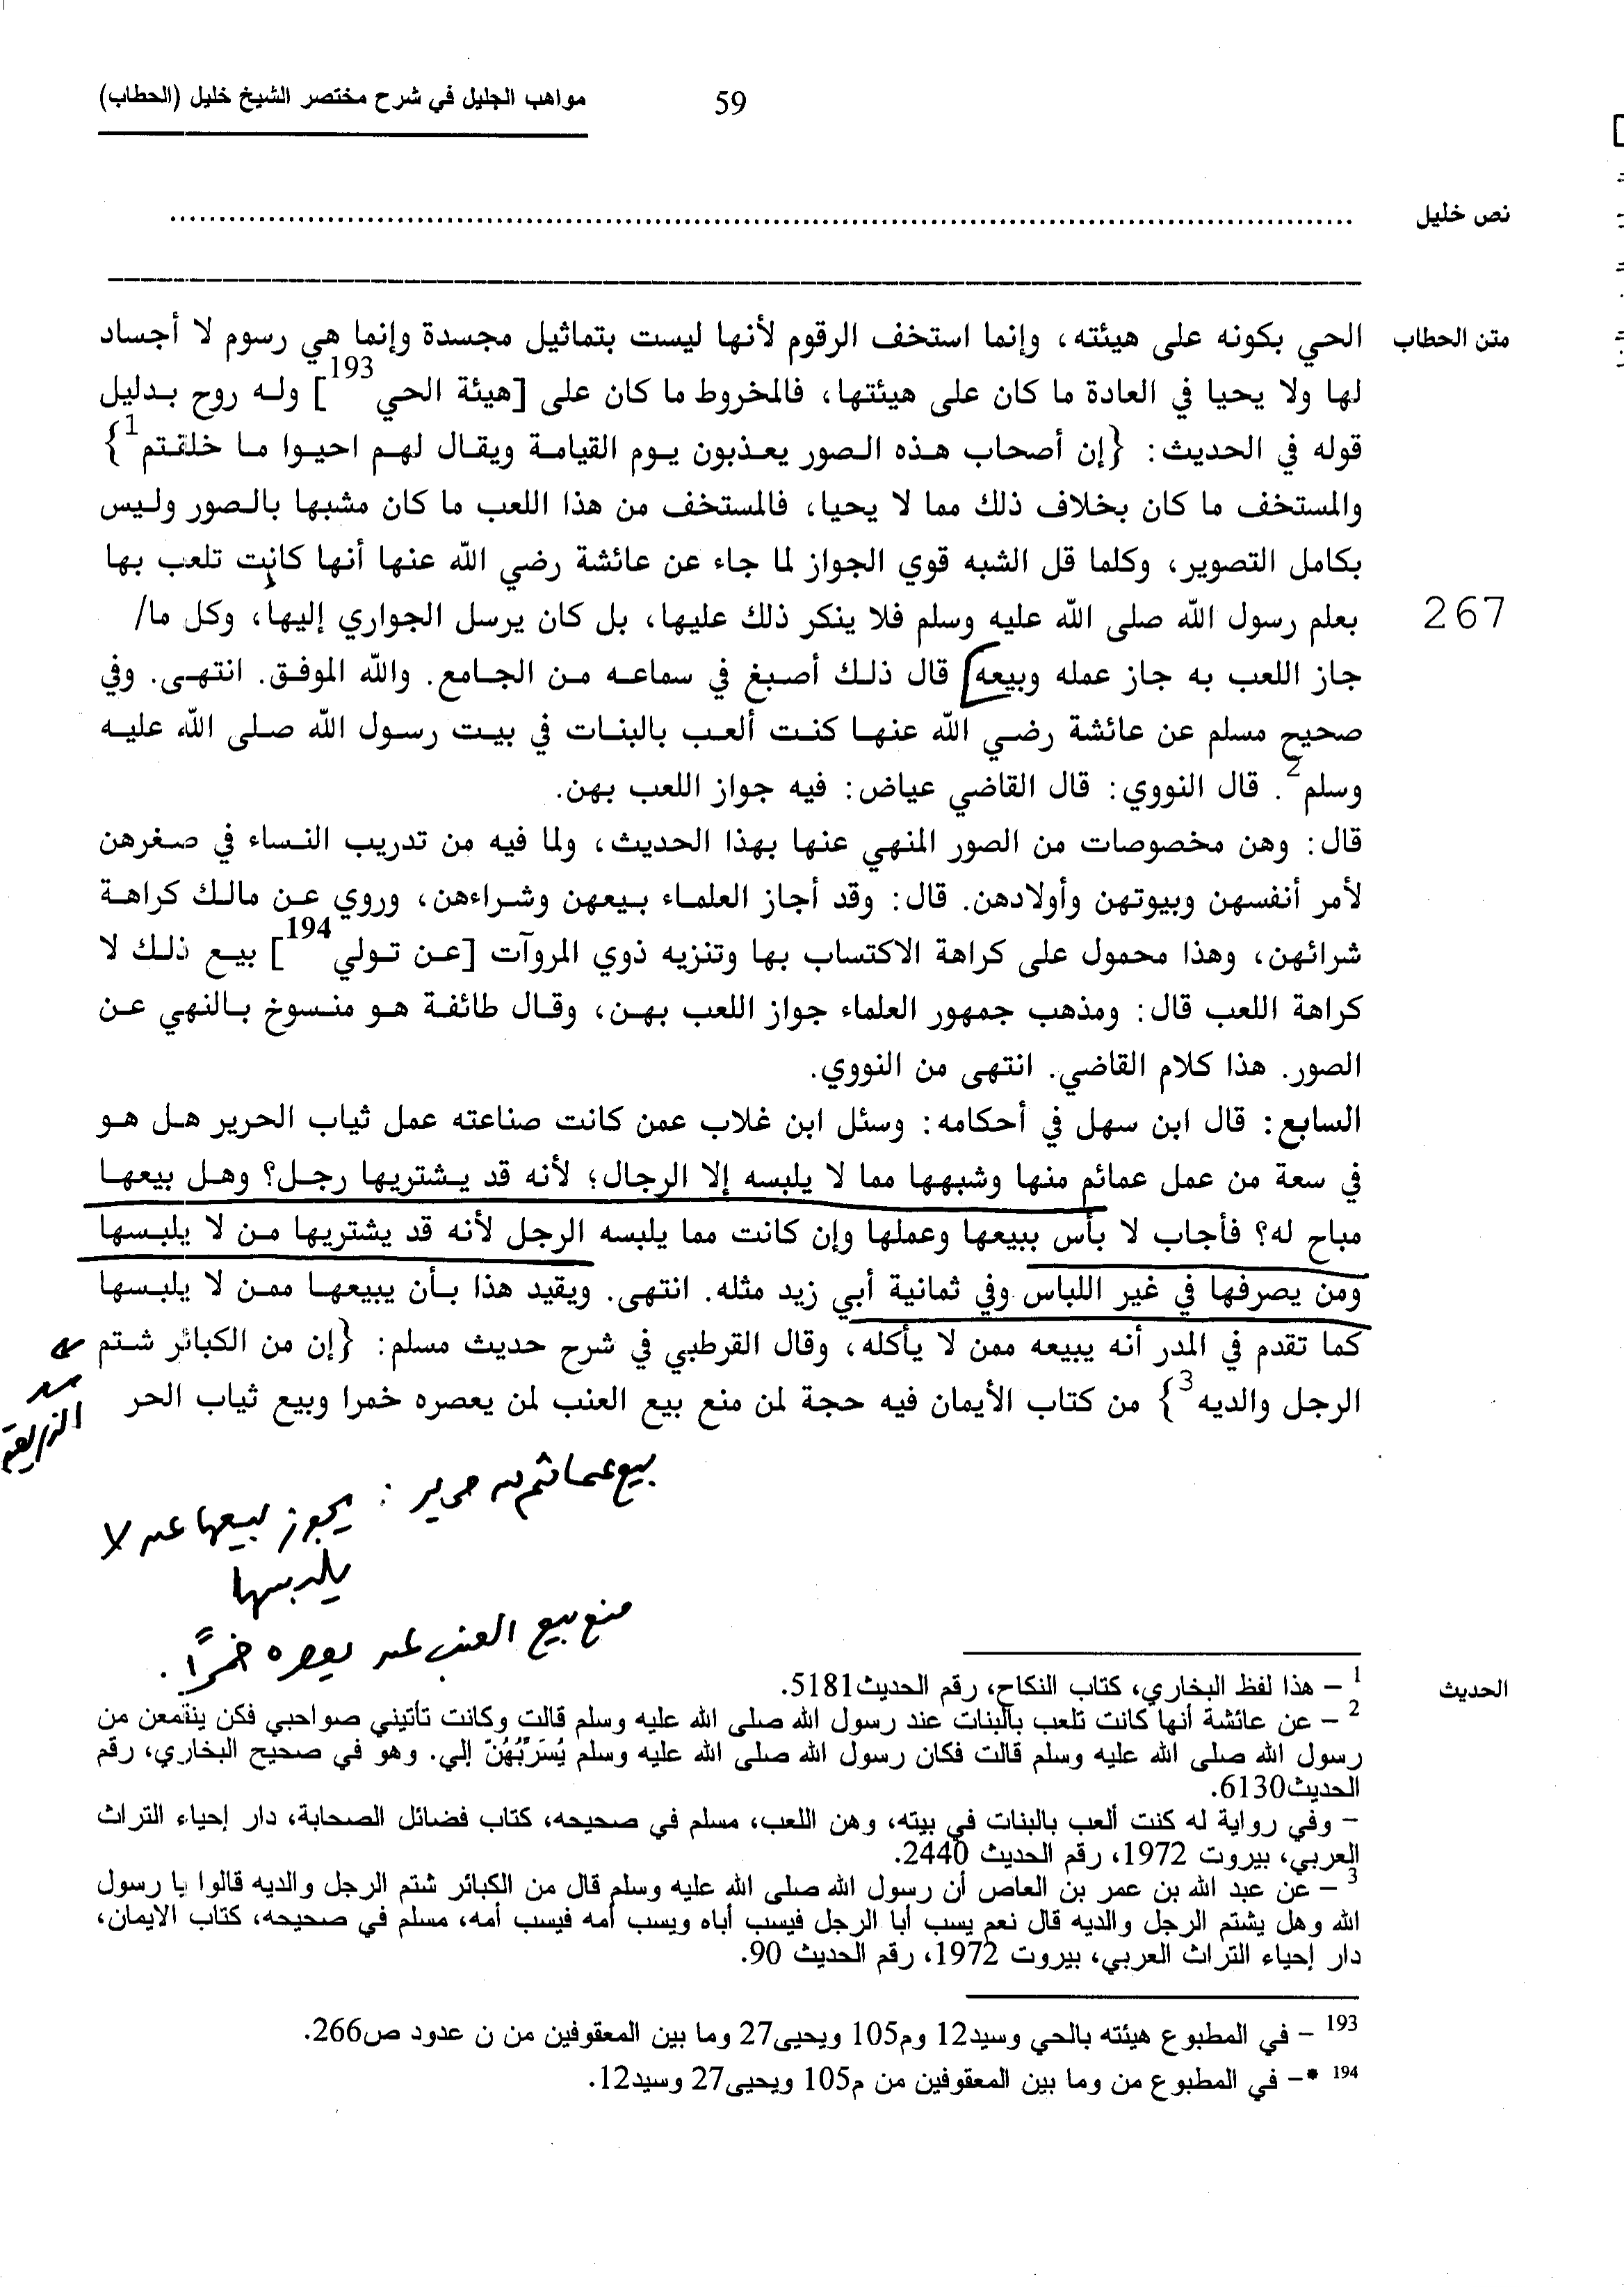 مواهب الجليل في شرح مختصر الشيخ خليل (الحطاب)
59
نص خليل ................................................................................
متن الحطاب
الحي بكونه على هيئته، وإنما استخف الرقوم لأنها ليست بتماثيل مجسدة وإنما هي رسوم لا أجساد
لها ولا يحيا في العادة ما كان على هيئتها، فالمخروط ما كان على [هيئة الحي193] وله روح بدليل
قوله في الحديث: {إن أصحاب هذه الصور يعذبون يوم القيامة ويقال لهم احيوا ما خلقتم1}
والمستخف ما كان بخلاف ذلك مما لا يحيا، فالمستخف من هذا اللعب ما كان مشبها بالصور وليس
بكامل التصوير، وكلما قل الشبه قوي الجواز لما جاء عن عائشة رضي الله عنها أنها كانت تلعب بها
267
بعلم رسول الله صلى الله عليه وسلم فلا ينكر ذلك عليها، بل كان يرسل الجواري إليها، وكل ما/
جاز اللعب به جاز عمله وبيعه قال ذلك أصبغ في سماعه من الجامع. والله الموفق. انتهى. وفي
صحيح مسلم عن عائشة رضي الله عنها كنت ألعب بالبنات في بيت رسول الله صلى الله عليه
وسلم2. قال النووي: قال القاضي عياض: فيه جواز اللعب بهن.
قال: وهن مخصوصات من الصور المنهي عنها بهذا الحديث، ولما فيه من تدريب النساء في صغرهن
لأمر أنفسهن وبيوتهن وأولادهن. قال: وقد أجاز العلماء بيعهن وشراءهن، وروي عن مالك كراهة
شرائهن، وهذا محمول على كراهة الاكتساب بها وتنزيه ذوي المروآت [عن تولي194] بيع ذلك لا
كراهة اللعب قال: ومذهب جمهور العلماء جواز اللعب بهن، وقال طائفة هو منسوخ بالنهي عن
الصور. هذا كلام القاضي. انتهى من النووي.
السابع: قال ابن سهل في أحكامه: وسئل ابن غلاب عمن كانت صناعته عمل ثياب الحرير هل هو
في سعة من عمل عمائم منها وشبهها مما لا يلبسه إلا الرجال؛ لأنه قد يشتريها رجل؟ وهل بيعها
مباح له؟ فأجاب لا بأس ببيعها وعملها وإن كانت مما يلبسه الرجل لأنه قد يشتريها من لا يلبسها
ومن يصرفها في غير اللباس وفي ثمانية أبي زيد مثله. انتهى. ويقيد هذا بأن يبيعها ممن لا يلبسها
كما تقدم في المدر أنه يبيعه ممن لا يأكله، وقال القرطبي في شرح حديث مسلم: {إن من الكبائر شتم
الرجل والديه3} من كتاب الأيمان فيه حجة لمن منع بيع العنب لمن يعصره خمرا وبيع ثياب الحر
سد
الذريعة
بيع عمائم من حرير : يجوز بيعها عمن لا
يلبسها
منع بيع العنب عمن يعصره خمرًا.
الحديث
1 – هذا لفظ البخاري، كتاب النكاح، رقم الحديث5181.
2 – عن عائشة أنها كانت تلعب بالبنات عند رسول الله صلى الله عليه وسلم قالت وكانت تأتيني صواحبي فكن ينقمعن من
رسول الله صلى الله عليه وسلم قالت فكان رسول الله صلى الله عليه وسلم يُسَرِّبُهُنّ إلي. وهو في صحيح البخاري، رقم
الحديث6130.
– وفي رواية له كنت ألعب بالبنات في بيته، وهن اللعب، مسلم في صحيحه، كتاب فضائل الصحابة، دار إحياء التراث
العربي، بيروت 1972، رقم الحديث 2440.
3 – عن عبد الله بن عمر بن العاص أن رسول الله صلى الله عليه وسلم قال من الكبائر شتم الرجل والديه قالوا يا رسول
الله وهل يشتم الرجل والديه قال نعم يسب أبا الرجل فيسب أباه ويسب أمه فيسب أمه، مسلم في صحيحه، كتاب الايمان،
دار إحياء التراث العربي، بيروت 1972، رقم الحديث 90.
193 – في المطبوع هيئته بالحي وسيد12 وم105 ويحيى27 وما بين المعقوفين من ن عدود ص266.
194 *– في المطبوع من وما بين المعقوفين من م105 ويحيى27 وسيد12.